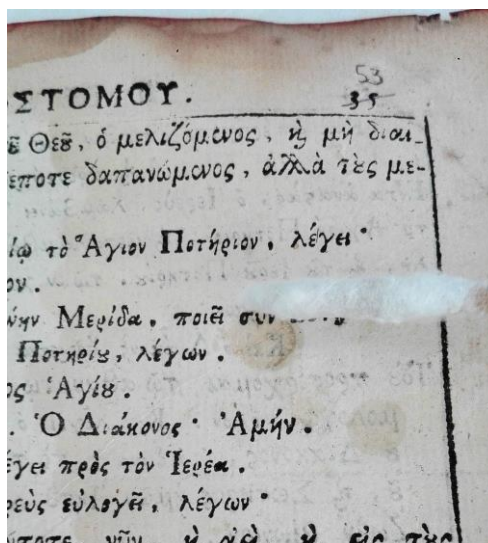 ΟΣΤΟΜΟΥ.
53
35
Θεοῦ, ὁ μελιζόμενος, καὶ μὴ διαι-
έποτε δαπανώμενος, ἀλλὰ τοὺς με-
ίῳ τὸ Ἅγιον Ποτήριον, λέγει·
ον.
Μερίδα, ποιεῖ συν
Ποτηρίου, λέγων.
ος Ἁγίου.
. Ὁ Διάκονος· Ἀμήν.
έγει πρὸς τὸν Ἱερέα.
ρεὺς εὐλογεῖ, λέγων·
ντοτε νῦν, καὶ ἀεὶ καὶ εἰς τοὺς